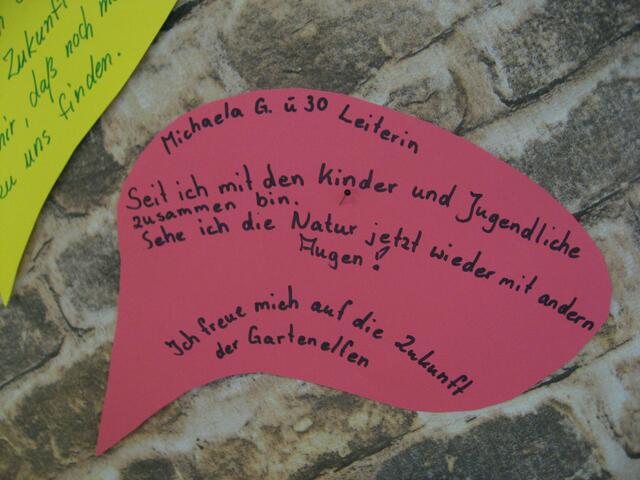 Zukunft
mir, daß noch
zu uns finden.
Michaela G. ü 30 Leiterin
Seit ich mit den Kinder und Jugendliche
zusammen bin.
Sehe ich die Natur jetzt wieder mit andern
Augen!
Ich freue mich auf die Zukunft
der Gartenelfen